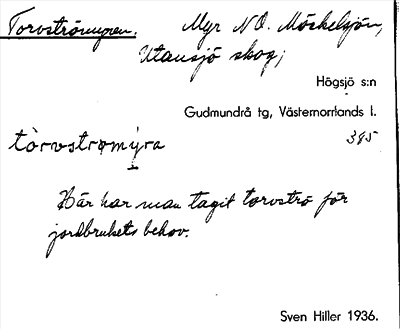 Torvströmyren. Myr N.O. Möckelsjön,
Utansjö skog;
Högsjö s:n
Gudmundrå tg, Västernorrlands l.
385
tòrvstromýra
Här har man tagit torvströ för
jordbrukets behov.
Sven Hiller 1936.